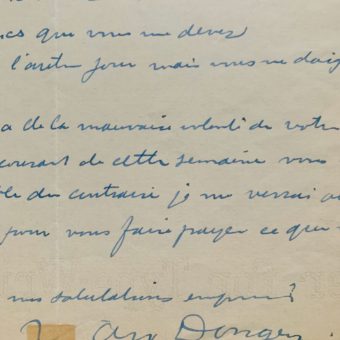 que vous me devez
l'autre jour mais vous ne
a de la mauvaise volonté de votre
courant de cette semaine vous
du contraire je me verrai
pour vous faire payer ce que
nos salutations
Van Dongen